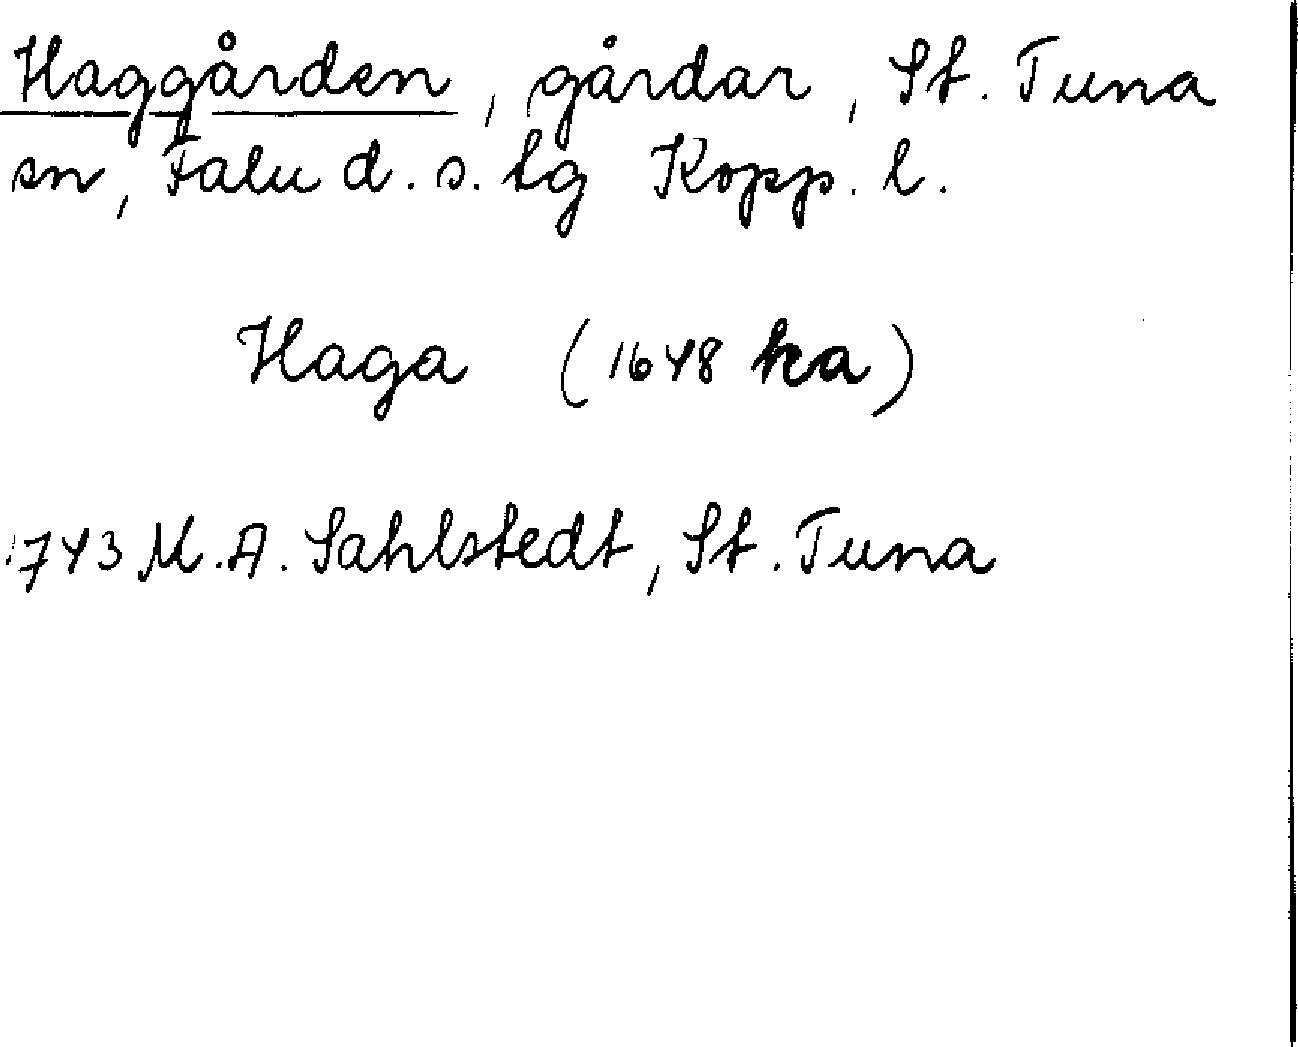 Haggården, gårdar, St. Tuna
sn, Falu d. s. tg Kopp. l.
Haga (1648 ka)
1743 M. A. Sahlstedt, St. Tuna